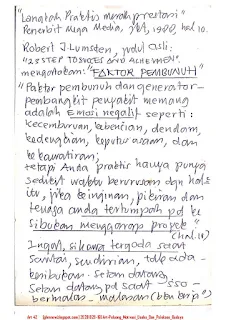 "Langkah Praktis meraih prestasi"
Penerbit Nuga Media, Jkt, 1980, hal 10.
Robert J. Lumsden, judul asli:
"23 STEP TO SUCCES AND ACHIEVMEN",
mengatakan: "FAKTOR PEMBUNUH"
"Faktor pembunuh dan generator-
pembangkit penyakit memang
adalah Emosi negatif seperti:
kecemburuan, kebencian, dendam,
kedengkian, keputus asaan, dan
kekawatiran;
tetapi Anda praktis hanya punya
sedikit waktu berurusan dgn hal2
itu, jika keinginan, pikiran dan
tenaga anda tertumpah pd ke
sibukan menggarap proyek"
(hal. 10)
Ingat, si kawa tergoda saat
Santai, sendirian, tak ada
kesibukan. Setan datang,
Setan datang pd saat
bermalas-malasan